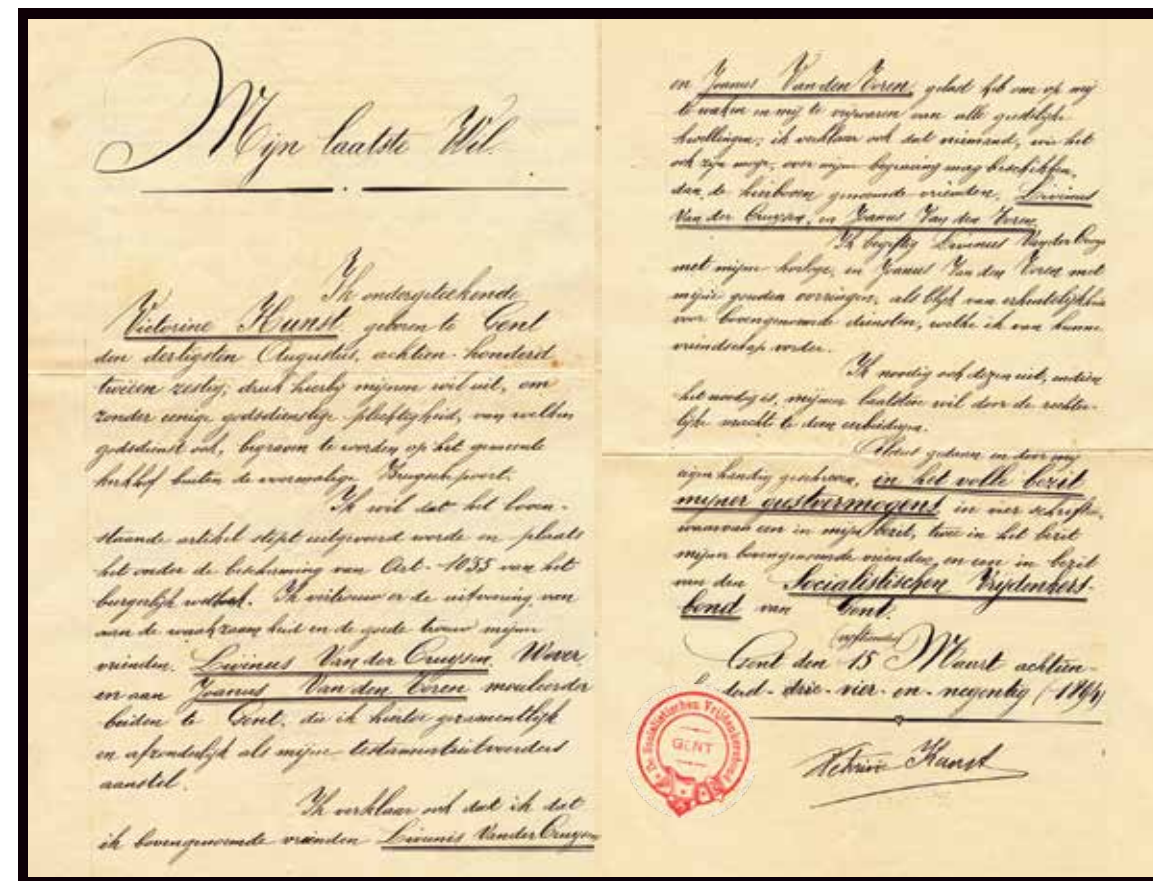 Mijn laatste Wil.
Ik ondergeteekende
Victorine Kunst, geboren te Gent
den dertigsten Augustus, achtien-honderd
tweeen zestig, druk hierbij mijnen wil uit, om
zonder eenige godsdienstige plechtigheid, van welken
godsdienst ook, begraven te worden op het gemeente
kerkhof buiten de voormalige Brugschepoort.
Ik wil dat het boven-
staande artikel stipt uitgevoerd worde en plaats
het onder de bescherming van Art. 1035 van het
burgerlijk wetboek. Ik vertrouw er de uitvoering van
aan de waakzaamheid en de goede trouw mijner
vrienden. Livinus Van der Cruysen, Wever
en aan Joanus Van den Toren mouleerder
beiden te Gent, die ik hierbij gezamentlijk
en afzonderlijk als mijne testamentuitvoerders
aanstel.
Ik verklaar ook dat ik dat
ik bovengenoemde vrienden Livinis Vander Cruysen
en Joanus Van den Toren, gelast heb om op mij
te waken en mij te vrijwaren van alle
kwellingen; ik verklaar ook dat niemand, wie het
ook zijn moge, over mijne begraving mag beschikken,
dan de hierboven genoemde vrienden, Livinus
Van der Cruysen, en Joanus Van den Toren.
Ik begiftig Livinus Van der Cruys
met mijne horloge, en Joanus Van den Toren met
mijne gouden oorringen, als blijk van erkentelijkheid
voor bovengenoemde diensten, welke ik van hunne
vriendschap vorder.
Ik noodig ook dezen uit, indien
het noodig is, mijnen laatsten wil door de rechter-
lijke macht te doen eerbiedigen.
Aldus gedaan en door mij
eigenhandig geschreven, in het volle bezit
mijner geestvermogens in vier schriften,
waarvan een in mijn bezit, twee in het bezit
mijner bovengenoemde vrienden, en een in bezit
van den Socialistischen Vrijdenkers-
bond van Gent.
(vijftienden)
Gent den 15 Maart achtien-
honderd-drie-vier-en-negentig (1894)
De Socialistischen Vrijdenkersbond
GENT
Kunst